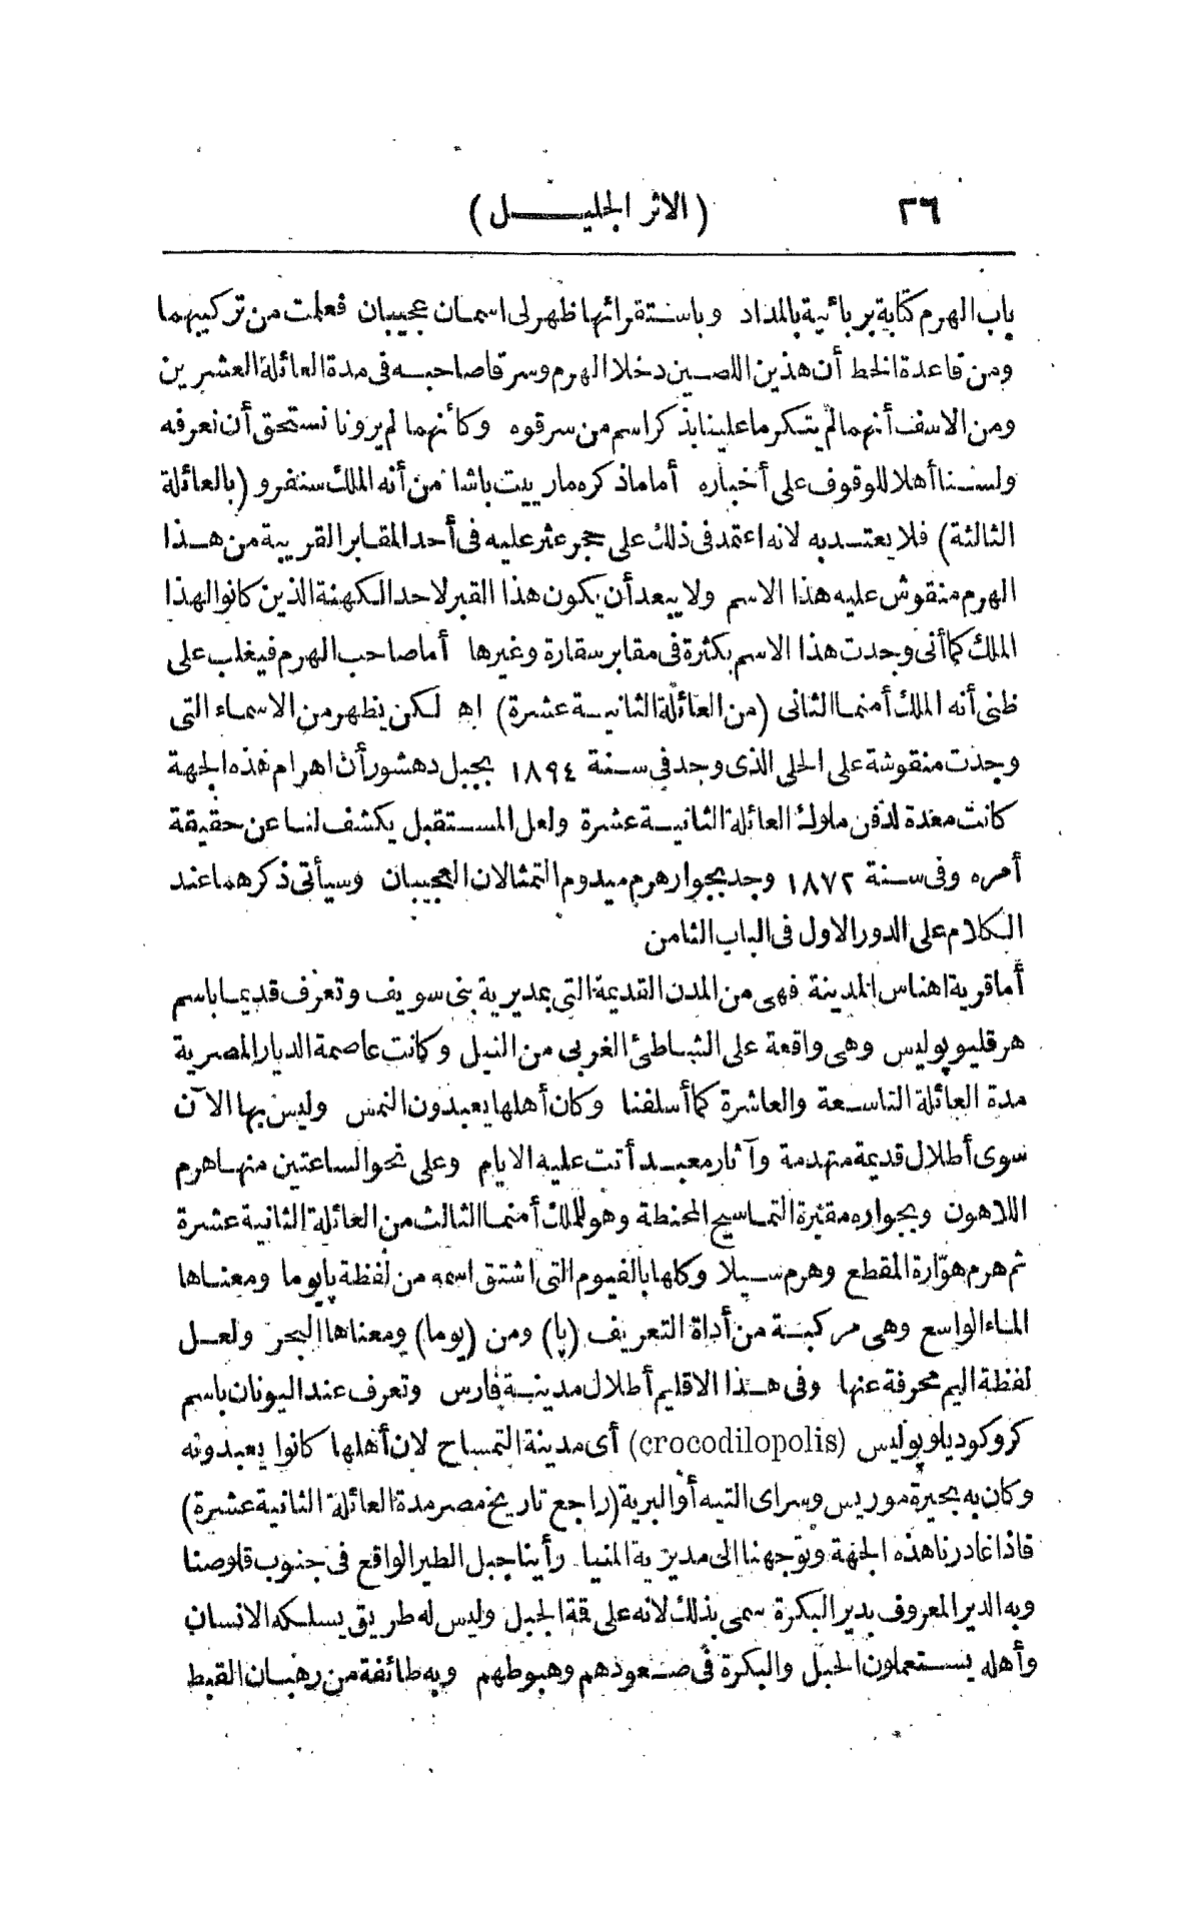 ٢٦ (الاثر الجليل)
باب الهرم كتابة بربائية بالمداد وباستقرائها ظهر لى اسمان عجيبان فعلمت من تركيبهما
ومن قاعدة الخط أن هذين اللصين دخلا الهرم وسرقا صاحبه فى مدة العائلة العشرين
ومن الاسف أنهما لم يتكرما علينا بذكر اسم من سرقوه وكأنهما لم يرونا نستحق أن نعرفه
ولسنا أهلا للوقوف على أخباره أما ماذكره مارييت باشا من أنه الملك سنفرو (بالعائلة
الثالثة) فلا يعتد به لانه اعتمد فى ذلك على حجر عثر عليه فى أحد المقابر القريبة من هذا
الهرم منقوش عليه هذا الاسم ولا يبعد أن يكون هذا القبر لاحد الكهنة الذين كانوا لهذا
الملك كما أنى وجدت هذا الاسم بكثرة فى مقابر سقارة وغيرها أما صاحب الهرم فيغلب على
ظنى أنه الملك أمنما الثانى (من العائلة الثانية عشرة) اه لكن يظهر من الاسماء التى
وجدت منقوشة على الحلى الذى وجد فى سنة ١٨٩٤ بجبل دهشور أن اهرام هذه الجهة
كانت معدة لدفن ملوك العائلة الثانية عشرة ولعل المستقبل يكشف لنا عن حقيقة
أمره وفى سنة ١٨٧٢ وجد بجوار هرم ميدوم التمثالان العجيبان وسيأتى ذكرهما عند
الكلام على الدور الاول فى الباب الثامن
أما قرية اهناس المدينة فهى من المدن القديمة التى بمديرية بنى سويف وتعرف قديما باسم
هرقليوپوليس وهى واقعة على الشاطئ الغربى من النيل وكانت عاصمة الديار المصرية
مدة العائلة التاسعة والعاشرة كما أسلفنا وكان أهلها يعبدون النمس وليس بها الآن
سوى أطلال قديمة متهدمة وآثار معبد أتت عليه الايام وعلى نحو الساعتين منها هرم
اللاهون وبجواره مقبرة التماسيح المحنطة وهو للملك أمنما الثالث من العائلة الثانية عشرة
ثم هرم هوّارة المقطع وهرم سيلا وكلها بالفيوم التى اشتق اسمه من لفظة پايوما ومعناها
الماء الواسع وهى مركبة من أداة التعريف (پا) ومن (يوما) ومعناها البحر ولعل
لفظة اليم محرفة عنها وفى هذا الاقليم أطلال مدينة فارس وتعرف عند اليونان باسم
كروكوديلوپوليس (crocodilopolis) أى مدينة التمساح لان أهلها كانوا يعبدونه
وكان به بحيرة موريس وسراى التيه أو البربة (راجع تاريخ مصر مدة العائلة الثانية عشرة)
فاذا غادرنا هذه الجهة وتوجهنا الى مديرية المنيا رأينا جبل الطير الواقع فى جنوب قلوصنا
وبه الدير المعروف بدير البكرة سمى بذلك لانه على قمة الجبل وليس له طريق يسلكه الانسان
وأهله يستعملون الحبل والبكرة فى صعودهم وهبوطهم وبه طائفة من رهبان القبط